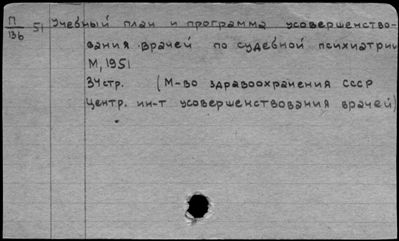 П 51 Учебный план и программа усовершенство-
136 вания врачей по судебной психиатрии
М, 1951
34 стр. (М-во здравоохранения СССР
Центр. ин-т усовершенствования врачей)